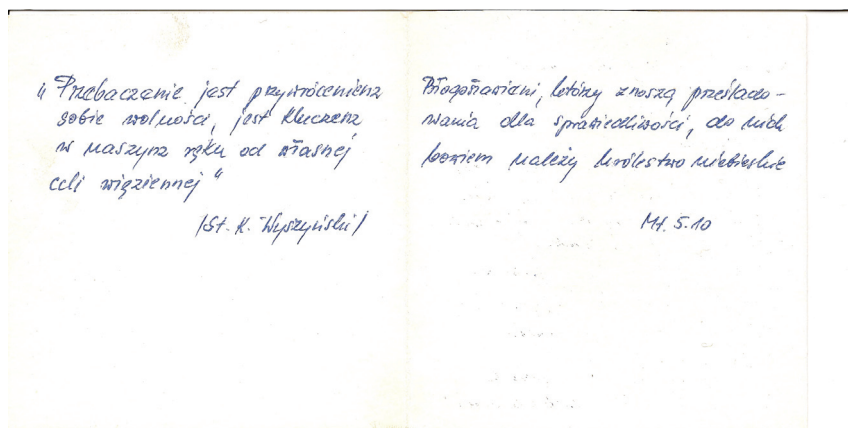 „Przebaczenie jest przywróceniem
sobie wolności, jest kluczem
w naszym ręku od własnej
celi więziennej"
/St. K. Wyszyński/
Błogosławieni, którzy znoszą prześlado-
wania dla sprawiedliwości, do nich
bowiem należy królestwo niebieskie
Mt. 5.10